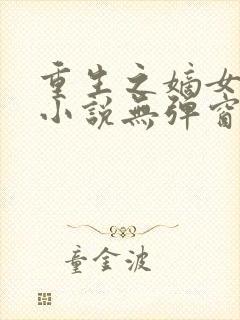 重生之嫡女
小說無彈窗
童金波